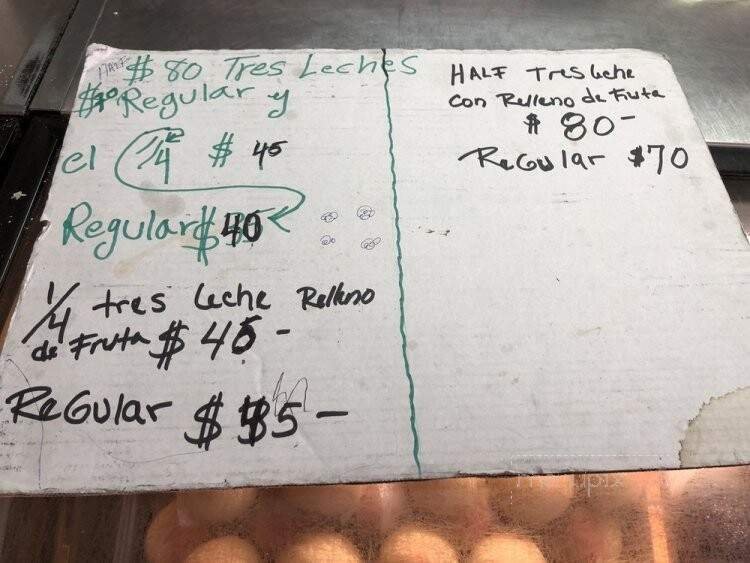 HALF $80 Tres Leches
$70 Regular y
el 1/4 $ 45
Regular $40
1/4 tres leche Relleno
de Fruta $ 45 -
ReGular $ 5 -
HALF Tres leche
con Relleno de Fruta
$ 80 -
ReGular $70